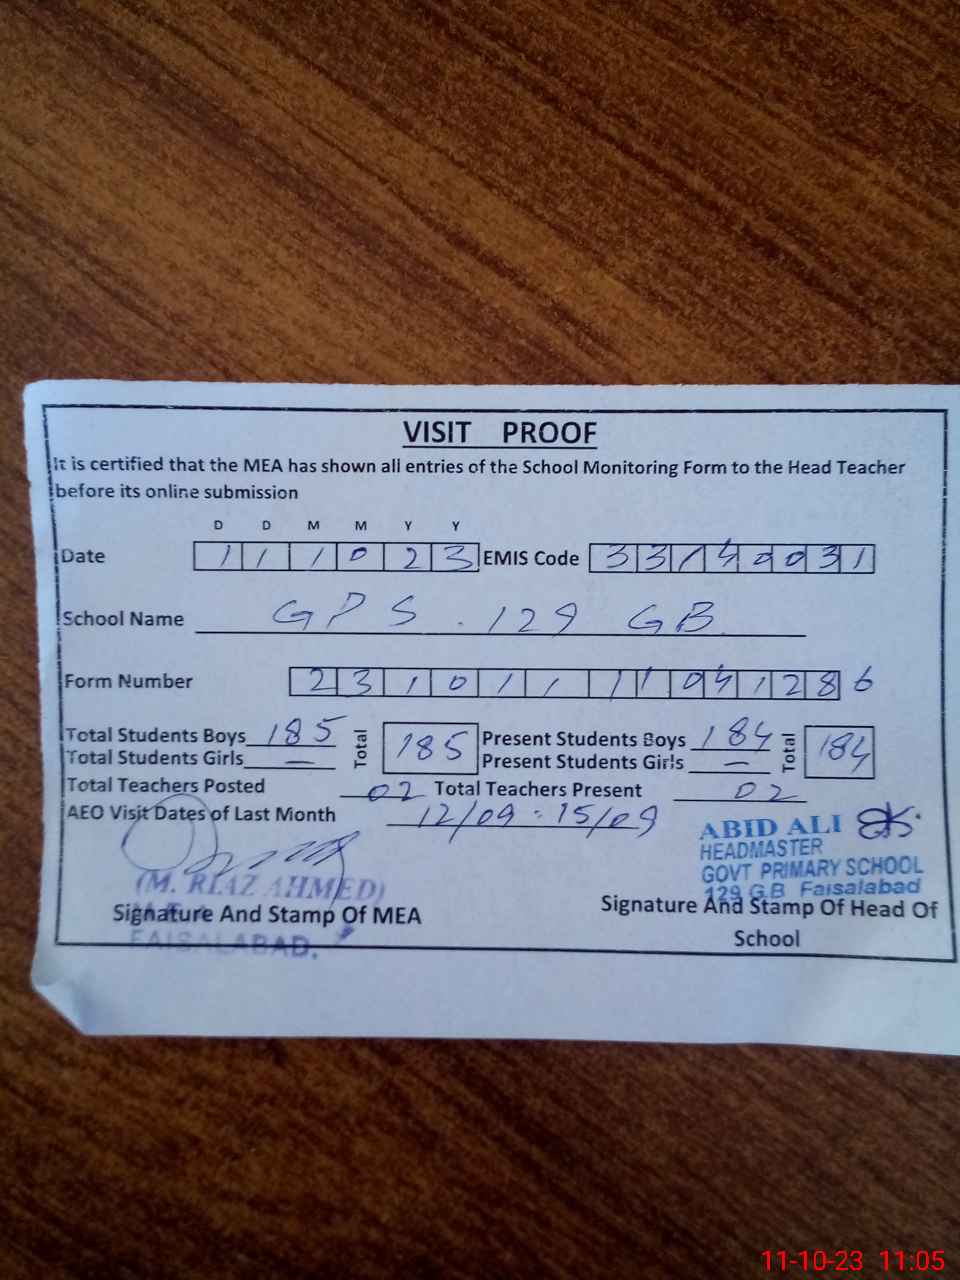 VISIT PROOF
It is certified that the MEA has shown all entries of the School Monitoring Form to the Head Teacher
before its online submission
D D M M Y Y
Date 1 1 1 0 2 3 EMIS Code 3 3 1 4 0 0 3 1
School Name GPS . 129 GB
Form Number 2 3 1 0 1 1 1 1 0 4 1 2 8 6
Total Students Boys 185 Total 185 Present Students Boys 184 Total 184
Total Students Girls — Present Students Girls —
Total Teachers Posted 02 Total Teachers Present 02
AEO Visit Dates of Last Month 12/09 : 15/09
ABID ALI
HEADMASTER
GOVT PRIMARY SCHOOL
129 G.B Faisalabad
(M. RIAZ AHMED)
Signature And Stamp Of MEA
FAISALABAD.
Signature And Stamp Of Head Of
School
11-10-23 11:05